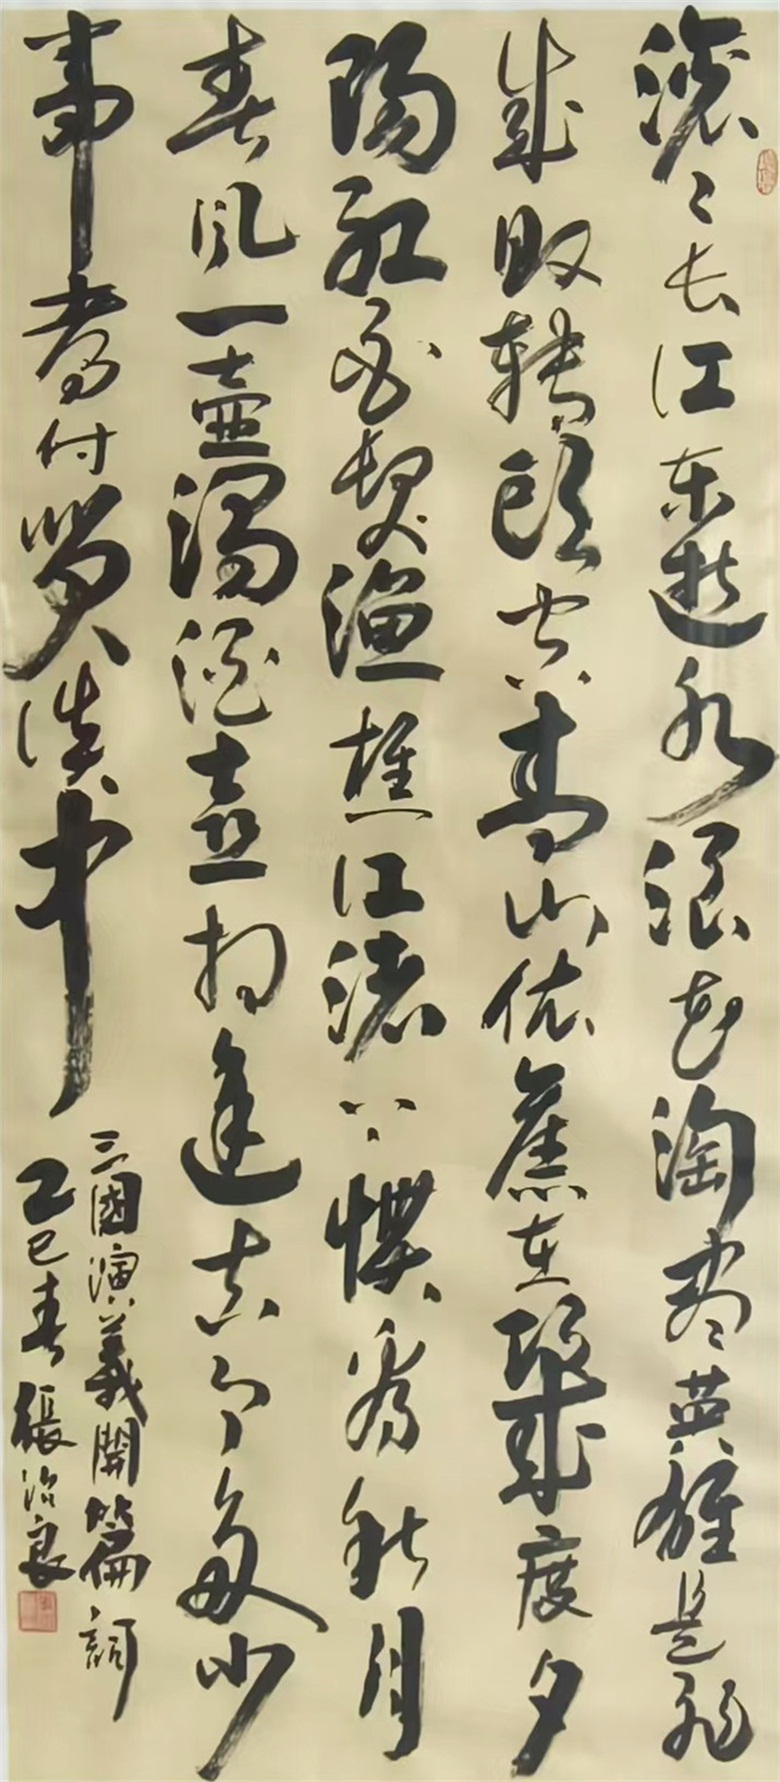 滚〻长江东逝水浪花淘尽英雄是非
成败转头空青山依旧在几度夕
阳红白发渔樵江渚上惯看秋月
春风一壶浊酒喜相逢古今多少
事都付笑谈中
三國演義開篇詞
乙巳春張治良